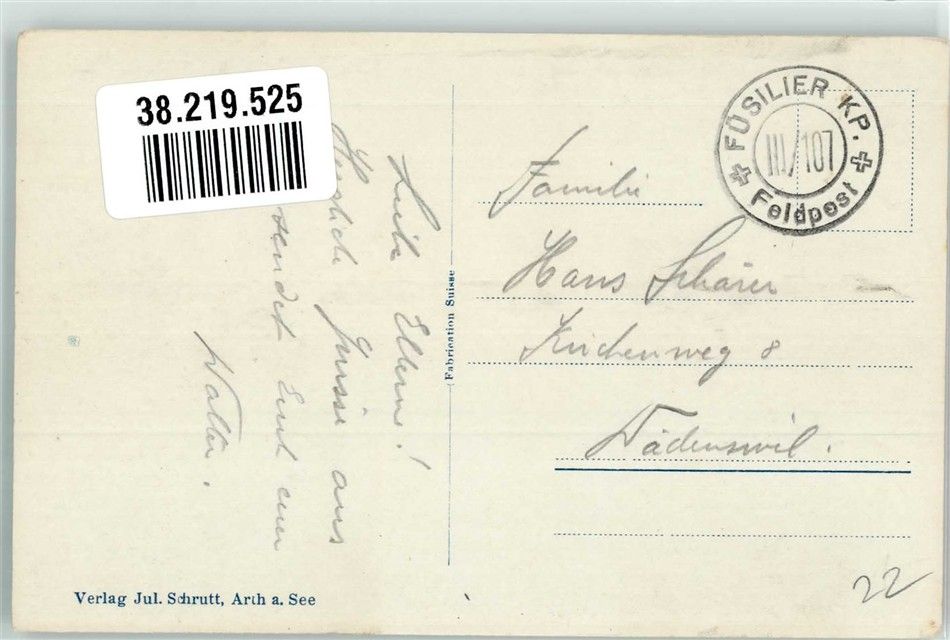 38.219.525
FÜSILIER KP.
III/107
Feldpost
Liebe Eltern!
Herzliche Grüsse aus
sendet Euch euer
Walter.
Fabrication Suisse
Familie
Hans Schärer
Kirchenweg 8
Wädenswil.
22
Verlag Jul. Schrutt, Arth a. See